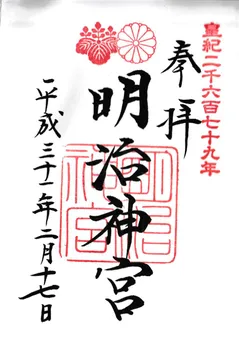 皇紀二千六百七十九年
奉拝
明治神宮
平成三十一年二月十七日
明治神宮